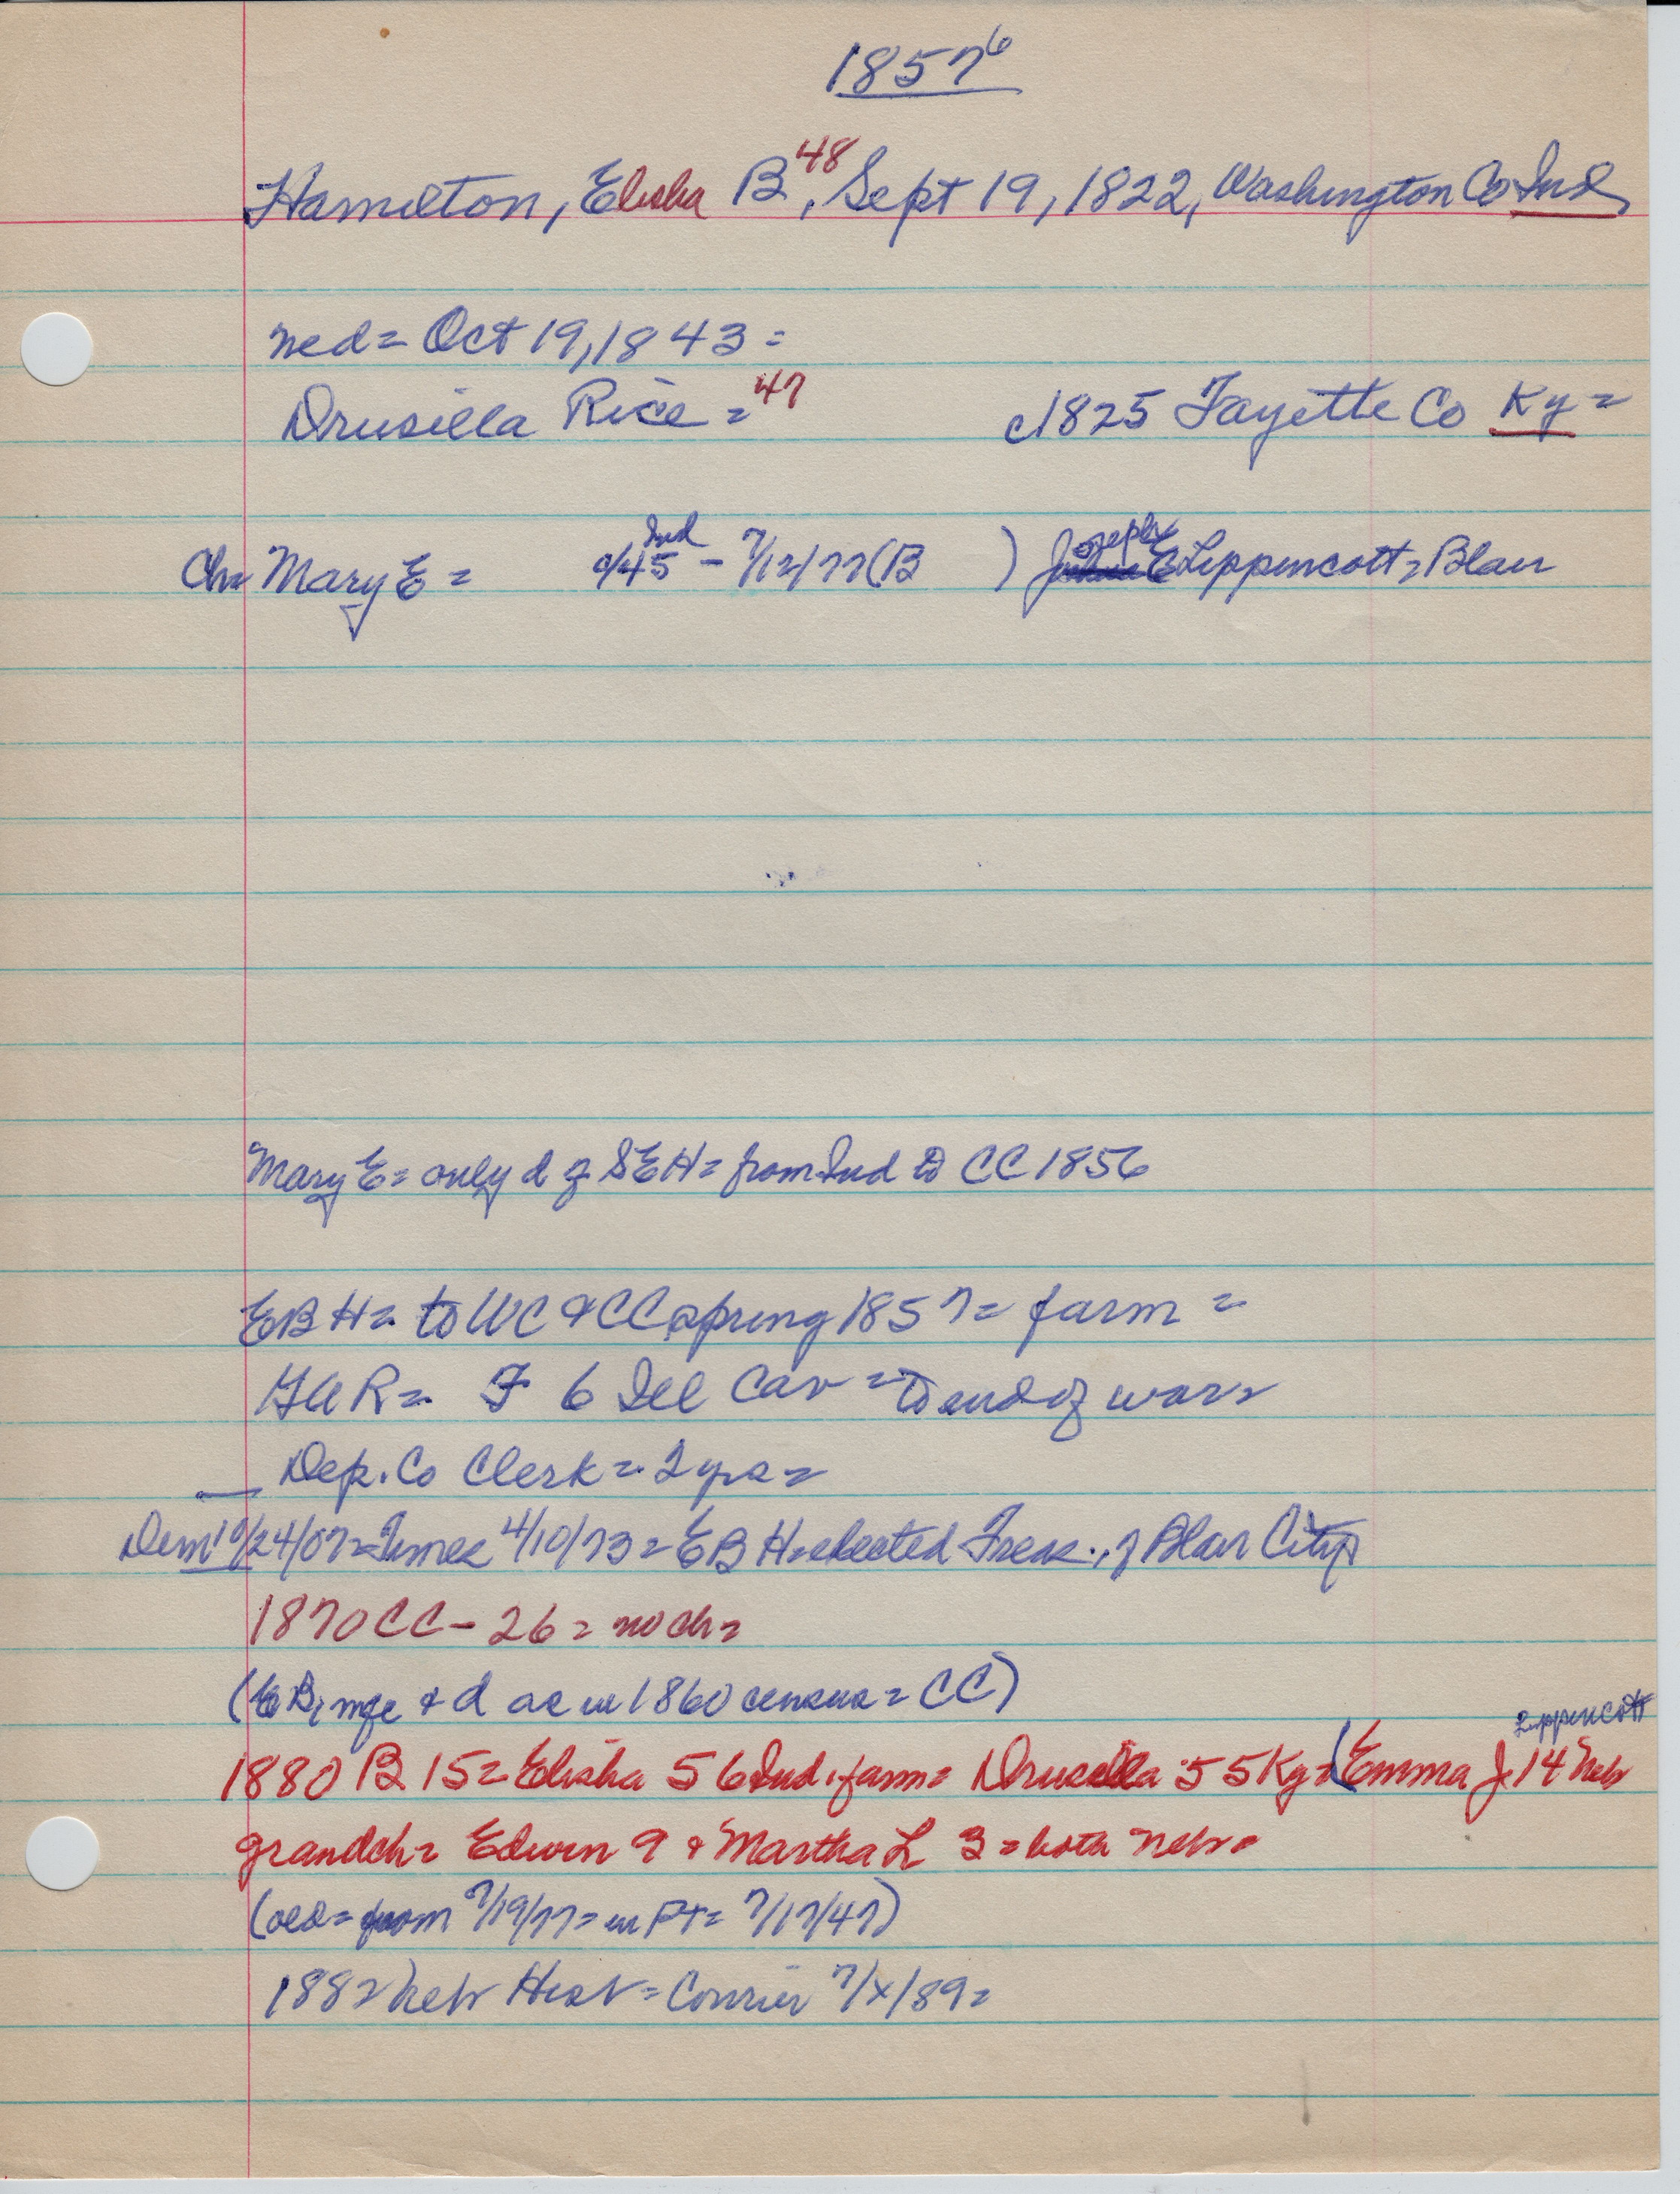 1857 6
Hamilton, Elisha B 48, Sept 19, 1822, Washington Co Ind
med = Oct 19, 1843 =
Drusilla Rice = 47 c1825 Fayette Co Ky =
Ch = Mary E = c/45 Ind - 7/12/77 (B ) Joseph E Lippencott = Blair
Mary E = only d of SEH = from Ind to CC 1856
EBH = to WC & CC spring 1857 = farm =
GAR = F 6 Ill Cav = to end of war =
Dep. Co Clerk = 2 yrs =
Dem 10/24/07 = Times 4/10/73 = EBH = elected Treas. of Blair City
1870 CC - 26 = no ch =
(EB, wife & d are in 1860 census = CC)
1880 B 15 = Elisha 56 Ind. farm = Drusilla 55 Ky = (Emma J. 14 Neb Lippencott
grandch = Edwin 9 & Martha L 3 = both Nebr =
from 7/19/77 = in PT = 7/17/47)
1882 Nebr Hist = Courier 7/x/89 =